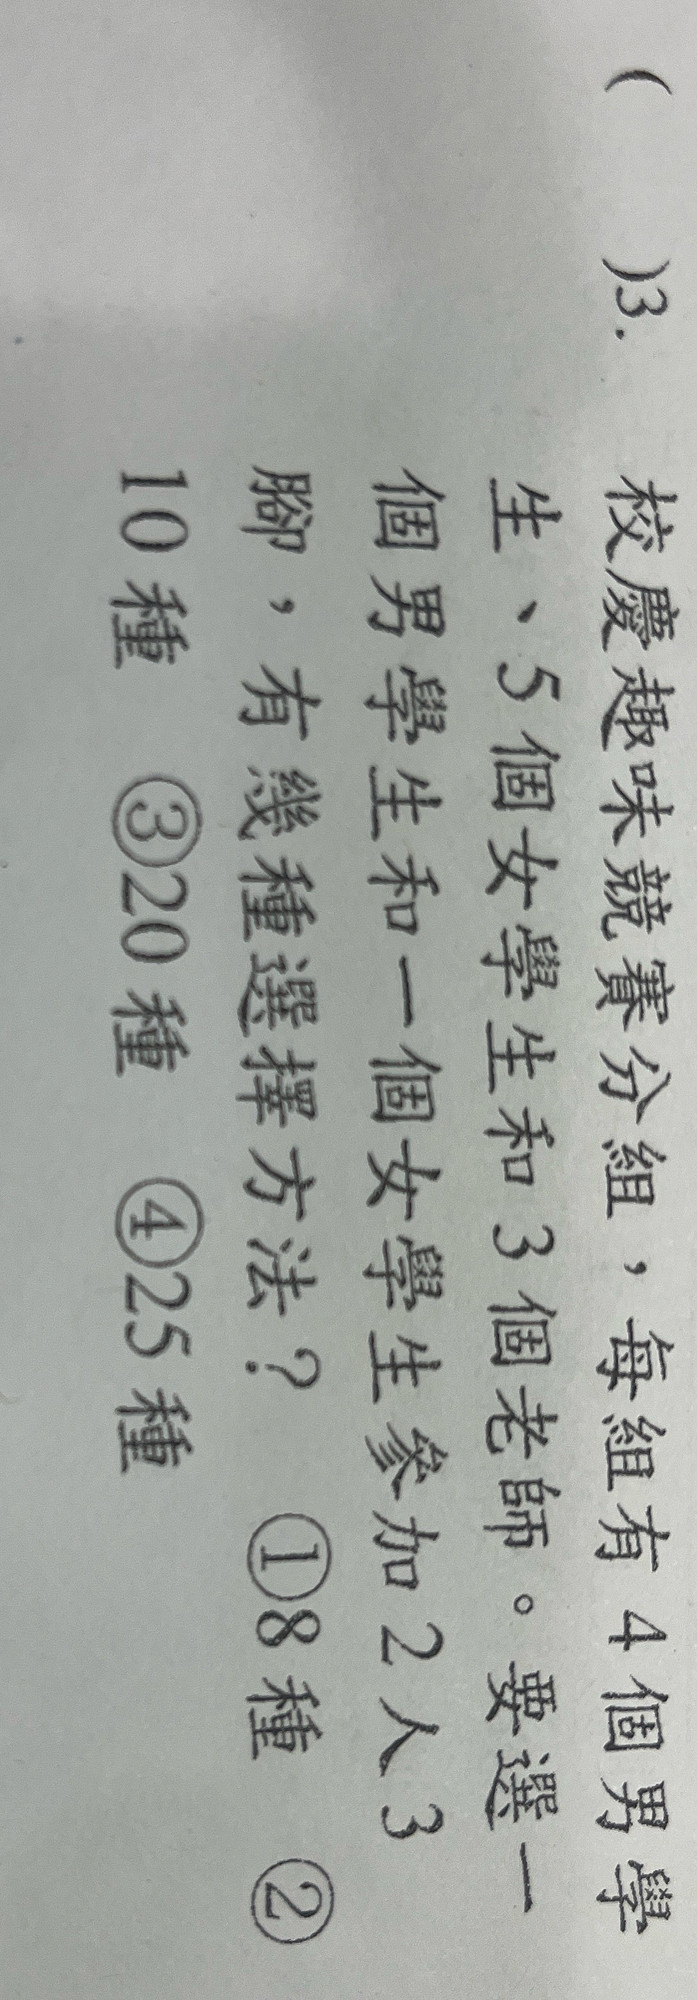 (　　)3. 校慶趣味競賽分組，每組有 4 個男學
生、5 個女學生和 3 個老師。要選一
個男學生和一個女學生參加 2 人 3
腳，有幾種選擇方法？ ①8 種 ②
10 種 ③20 種 ④25 種